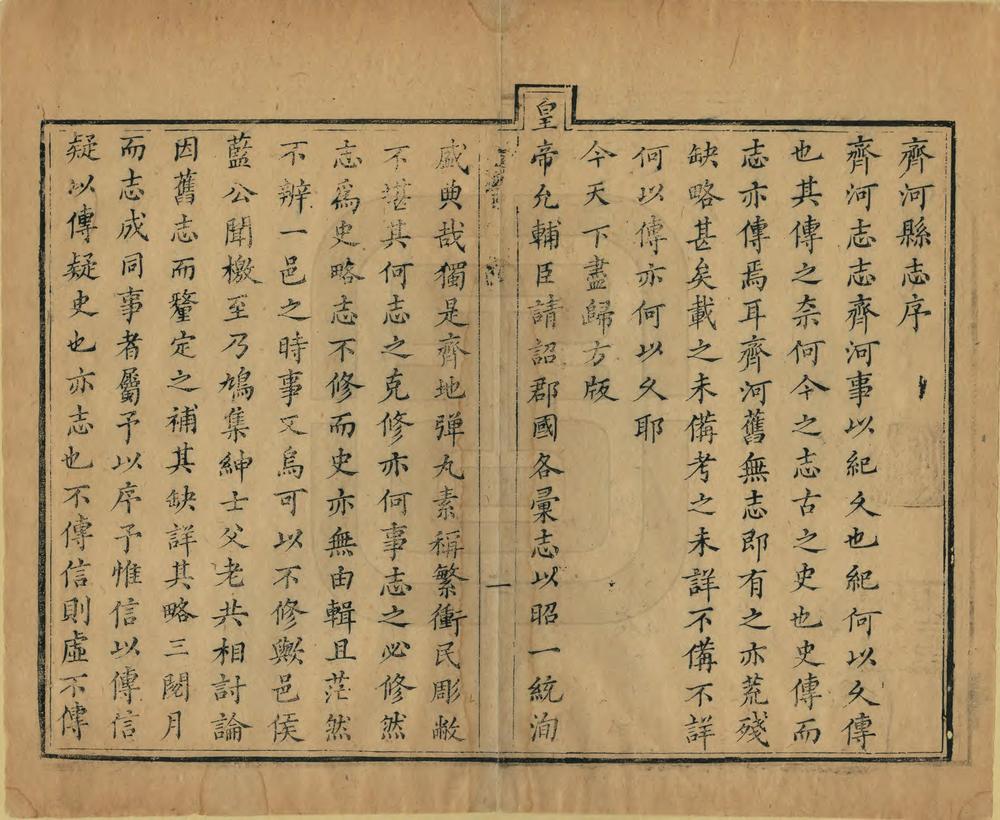 齊河縣志序
齊河志志齊河事以紀久也紀何以久傳
也其傳之柰何今之志古之史也史傳而
志亦傳焉耳齊河舊無志即有之亦荒殘
缺略甚矣載之未備考之未詳不備不詳
何以傳亦何以久耶
今天下盡歸方版
皇帝允輔臣請詔郡國各彙志以昭一統洵
一
盛典哉獨是齊地彈丸素稱繁衝民彫敝
不堪其何志之克修亦何事志之必修然
志爲史略志不修而史亦無由輯且茫然
不辨一邑之時事又烏可以不修歟邑侯
藍公聞檄至乃鳩集紳士父老共相討論
因舊志而釐定之補其缺詳其略三閱月
而志成同事者屬予以序予惟信以傳信
疑以傳疑史也亦志也不傳信則虛不傳